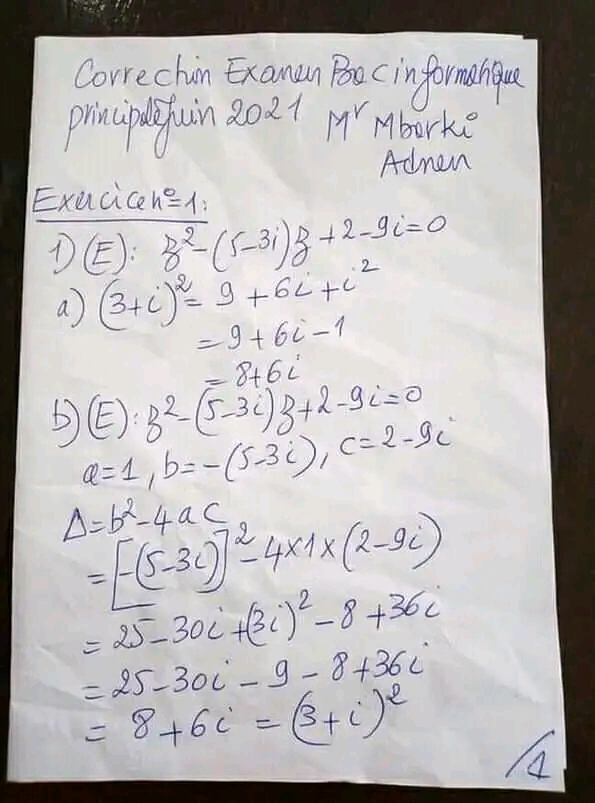 Correction Examen Bac informatique
principale Juin 2021 Mr Mbarki
Adnen
Exercice n°=1:
1) (E): z²-(5-3i)z+2-9i=0
a) (3+i)² = 9+6i+i²
= 9+6i-1
= 8+6i
b) (E): z²-(5-3i)z+2-9i=0
a=1, b=-(5-3i), c=2-9i
Δ=b²-4ac
= [-(5-3i)]²-4×1×(2-9i)
= 25-30i+(3i)²-8+36i
= 25-30i-9-8+36i
= 8+6i = (3+i)²
/1